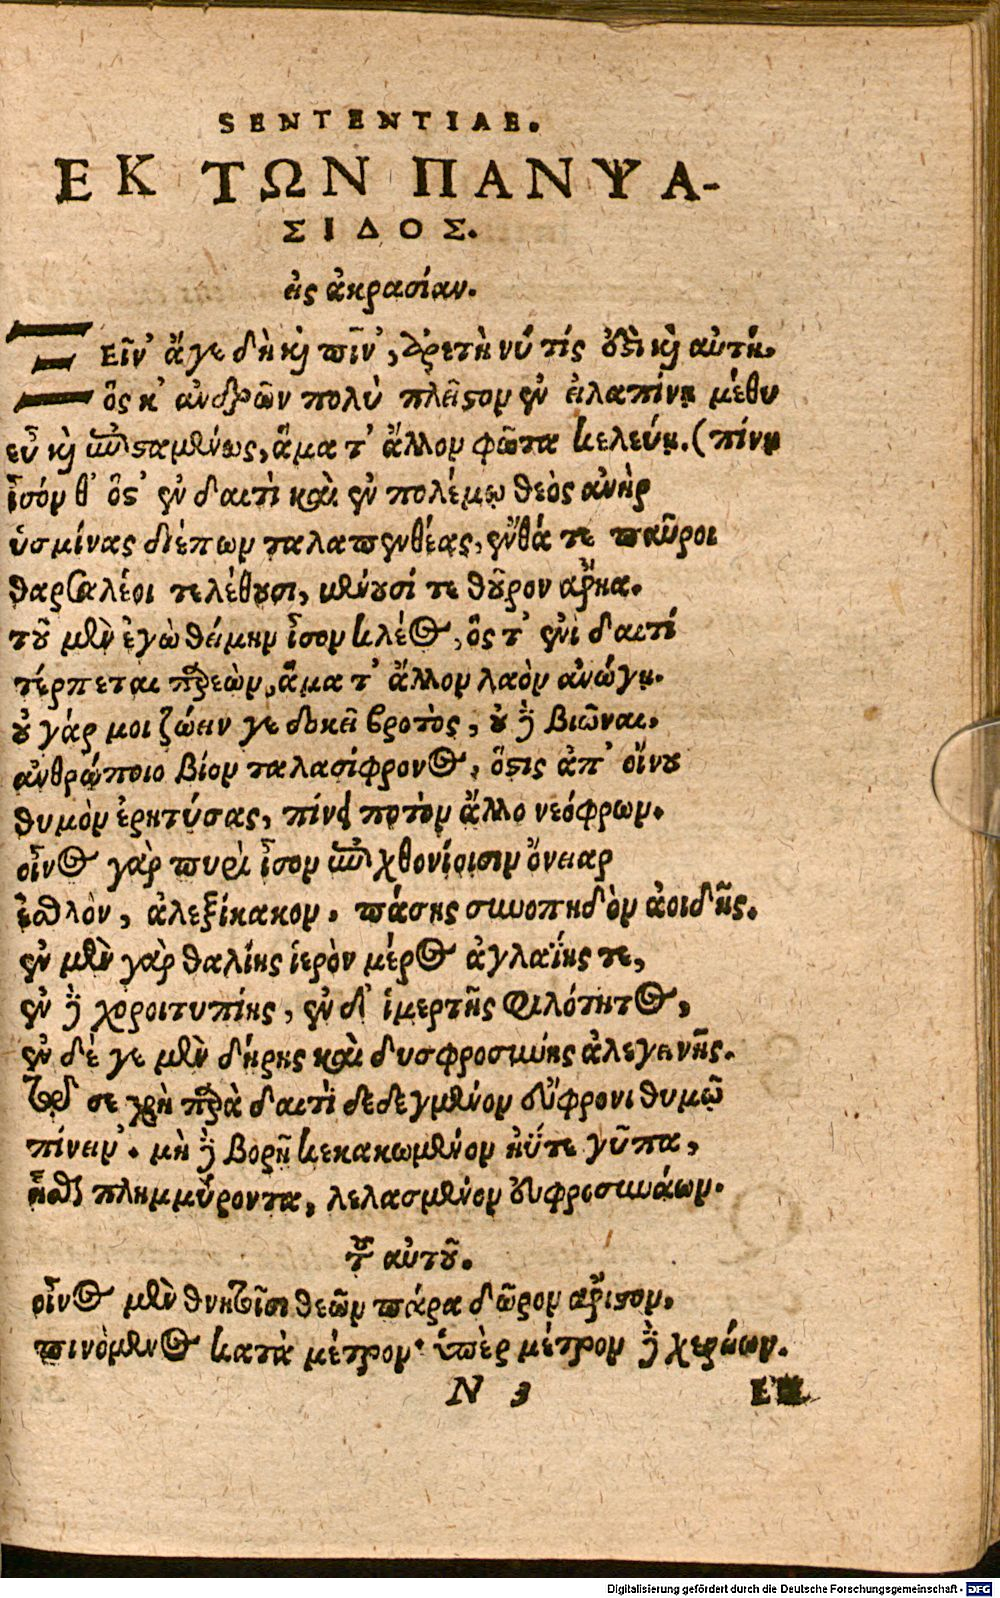 SENTENTIAE.
ΕΚ ΤΩΝ ΠΑΝΥΑ-
ΣΙΔΟΣ.
εἰς ἀκρασίαν.
ΞΕῖν' ἄγε δὴ καὶ πῖν', ἀρετὴ νύ τίς ὅστι καὶ αὐτή.
ὅς κ' ἀνδρῶν πολὺ πλεῖστον ἐν εἰλαπίνῃ μέθυ
εὖ καὶ ἐπισταμένως, ἅμα τ' ἄλλον φῶτα κελεύῃ. (πίνῃ
ἶσόν θ' ὅστ' ἐν δαιτὶ καὶ ἐν πολέμῳ θεὸς ἀνὴρ
ὑσμίνας διέπων ταλαπενθέας, ἔνθά τε παῦροι
θαρσαλέοι τελέθουσι, μένουσί τε θοῦρον ἄρηα.
τοῦ μὲν ἐγὼ θείμην ἶσον κλέος, ὅς τ' ἐνὶ δαιτί
τέρπεται παρεὼν, ἅμα τ' ἄλλον λαὸν ἀνώγῃ.
οὐ γάρ μοι ζώειν γε δοκεῖ βροτὸς, οὐ δὲ βιῶναι.
ἀνθρώποιο βίον ταλασίφρονος, ὅστις ἀπ' οἴνου
θυμὸν ἐρητύσας, πίνει ποτὸν ἄλλο νεόφρων.
οἶνος γὰρ πυρὶ ἶσον ἐπιχθονίοισιν ὄνειαρ
ἐσθλὸν, ἀλεξίκακον. πάσης συνοπηδὸν ἀοιδῆς.
ἐν μὲν γὰρ θαλίης ἱερὸν μέρος ἀγλαΐης τε,
ἐν δὲ χοροιτυπίης, ἐν δ' ἱμερτῆς φιλότητος,
ἐν δέ γε μὲν δήρης καὶ δυσφροσύνης ἀλεγεινῆς.
τῷ σε χρὴ παρὰ δαιτὶ δεδεγμένον εὔφρονι θυμῷ
πίνειν. μὴ δὲ βορῆ κεκακωμένον ἠΰτε γῦπα,
ἧσθαι πλημμύροντα, λελασμένον εὐφροσυνάων.
τοῦ αὐτοῦ.
οἶνος μὲν θνητοῖσι θεῶν πάρα δῶρον ἄριστον.
πινόμενος κατὰ μέτρον· ὑπὲρ μέτρον δὲ χερείων.
N 3
ΕΚ
Digitalisierung gefördert durch die Deutsche Forschungsgemeinschaft - DFG